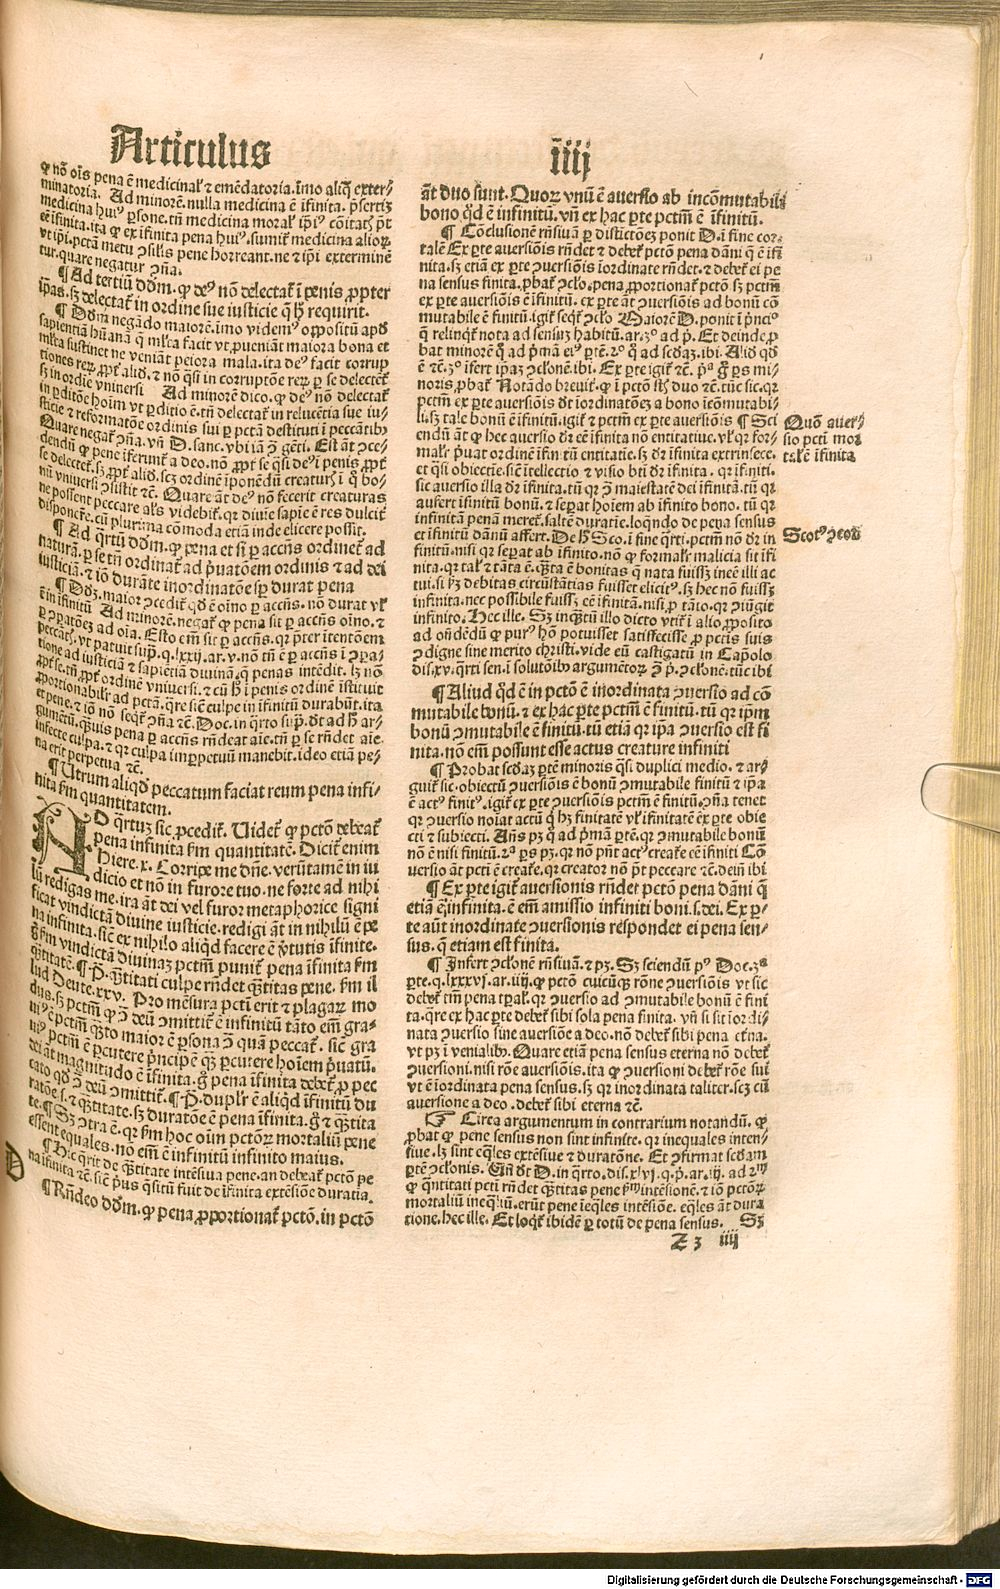 Articulus
iiij
ꝙ nō oīs pena ē medicinaľ ⁊ emēdatoria. īmo aliq̄ exter-
minatoria. Ad minorē. nulla medicina ē īfinita. p̄sertiꝫ
medicina huiꝰ ꝑsone. tn̄ medicina moraľ ip̄iꝰ cōitatꝭ pōt
eē īfinita. ita ꝙ ex īfinita pena huiꝰ. sumit̄ medicina alioꝝ
vt ip̄i. pctm̄ metu ↄsiľis pene horreant. ne ⁊ ip̄i exterminē
tur. quare negatur ↄn̄a.
¶ Ad tertiū dd̄m. ꝙ deꝰ nō delectat̄ ī penis ꝓpter
ip̄as. sꝫ delectat̄ in ordine sue iusticie q̄ h̄ requirit.
¶ Dd̄m negādo maiorē. īmo videmꝰ oppositū apd̄
sapientiā hūanā q̄ mľta facit vt ꝓueniāt maiora bona et
mľta sustinet ne veniāt peiora mala. ita deꝰ facit corrup
tiones reꝝ ꝓpt̄ aliđ. ⁊ nō q̄si in corruptōe reꝝ ꝑ se delectet̄
sꝫ in ordīe vniuersi Ad minorē dico. ꝙ deꝰ nō delectat̄
in ꝑditōe hoīm vt ꝑditio ē. tn̄ delectat̄ in relucētia sue iu-
sticie ⁊ reformatōe ordinis sui ꝑ pctā destituti ī peccātibꝰ
Quare negat̄ ↄn̄a. vn̄ D. sanc. vbi iā ꝫ gēti. Est āt ↄce-
dendū ꝙ pene īferunt̄ a deo. nō ꝓpt̄ se q̄si deꝰ ī penis ꝓpt̄
se delectet̄. sꝫ ꝓpt̄ aliđ. scꝫ ordinē īponēdū creaturꝭ ī q̄ bo-
nū vniuersi ↄsistit ⁊c̄. Quare āt deꝰ nō fecerit creaturas
ne possent peccare al's videbit̄. qr diuīe sapīe ē res dulcit̄
disponere. cū plurima cōmoda etiā inde elicere possit.
¶ Ad q̄rtū dd̄m. ꝙ pena et si ꝑ accn̄s ordinet̄ ad
naturā. ꝑ se tn̄ ordinat̄ ad p̄uatōem ordinis ⁊ ad dei
iusticiā. ⁊ iō durāte inordinatōe sꝑ durat pena
¶ Dd̄ꝫ. maior ↄcedit̄ qđ ē oīno ꝑ accn̄s. nō durat vľ
ē in īfinitū Ad minorē. negat̄ ꝙ pena sit ꝑ accn̄s oīno. ⁊
ꝑ ꝑatōeꝫ ad oīa. Esto em̄ sit ꝑ accn̄s. qr p̄ter itentōem
peccātꝭ. vt patuit sup̄. q. lxxij. ar. v. nō tn̄ ē ꝑ accn̄s ī ↄpa-
tione ad iusticiā ⁊ sapientiā diuinā. q̄ penas intēdit. lꝫ nō
ꝓpt̄ se. tn̄ ꝓpt̄ ordinē vniuersi. ⁊ cū h̄ ī penis ordinē īstituit
ꝓportionabiľr ad pctā. q̄re sic̄ culpe in īfinitū durabūt. ita
et pene. ⁊ iō nō seqt̄ ↄn̄a ⁊c̄. Doc. in q̄rto sup̄. dt ad h̄ ar-
gumētū. q̄uis pena ꝑ accn̄s rn̄deat aīe. tn̄ ꝑ se rn̄det aīe
infecte culpa. ⁊ qr culpa īmꝑpetuū manebit. ideo etiā pe-
na erit perpetua ⁊c̄.
¶ Utrum aliqđ peccatum faciat reum pena infi-
nita ẜm quantitatem.
AD q̄rtuꝫ sic ꝓcedit̄. Videt̄ ꝙ pctō debeat̄
pena infinita ẜm quantitatē. Dicit̄ enim
Hiere. x. Corripe me dn̄e. verūtamē in iu
dicio et nō in furore tuo. ne forte ad nihi
lū redigas me. ira āt dei vel furor metaphorice signi
ficat vindictā diuine iusticie. redigi āt in nihilū ē pe
na infinita. sic̄ ex nihilo aliqđ facere ē v̄tutis īfinite.
g̊ ẜm vindictā diuinaꝫ pctm̄ punit̄ pena īfinita ẜm
q̄titatē. ¶ P. q̄titati culpe rn̄det q̄titas pene. ẜm il
lud Deute. xxv. Pro mēsura pcti erit ⁊ plagaꝝ mo
dus. sꝫ pctm̄ ꝙ ↄ̄ deū ↄmittit̄ ē infinitū tāto em̄ gra-
uiꝰ ē pctm̄ q̄to maior ē ꝑsona ↄ̄ quā peccat̄. sic̄ gra
uiꝰ pctm̄ ē ꝑcutere p̄ncipē q̄ꝫ ꝑcutere hoīem p̄uatū.
dei āt magnitudo ē īfinita. g̊ pena īfinita debet̄ ꝓ pec
cato qđ ↄ̄ deū ↄmittit̄. ¶ P. dupľr ē aliqđ īfinitū du
ratōe s. ⁊ q̄titate. sꝫ duratōe ē pena īfinita. g̊ ⁊ q̄tita
te. ¶ Sꝫ ↄtra ē. qr ẜm hoc oīm pctōꝝ mortaliū pene
essent equales. nō em̄ ē infinitū infinito maius.
¶ Hic q̄rit de q̄titate intēsiua pene. an debeat̄ pctō pe
na īfinita ⁊c̄. sic̄ p̄us q̄situ̅ fuit de īfinita extēsiōe duratia.
¶ Rn̄deo dd̄m. ꝙ pena ꝓportionat̄ pctō. in pctō
D
āt duo sunt. Quoꝝ vnū ē auersio ab incōmutabili
bono qđ ē infinitū. vn̄ ex hac ꝑte pctm̄ ē īfinitū.
¶ Cōclusionē rn̄siuā ꝑ distīctōeꝫ ponit D. ī fine cor-
talē Ex ꝑte auersiōis rn̄det ⁊ debet̄ pctō pena dāni q̄ ē īfi
nita. sꝫ etiā ex ꝑte ↄuersiōis īordinate rn̄det. ⁊ debet̄ ei pe
na sensus finita. ꝓbat̄ ↄclō. pena ꝓportionat̄ pctō sꝫ pctm̄
ex ꝑte auersiōis ē īfinitū. ex ꝑte āt ↄuersiōis ad bonū cō
mutabile ē finitū. igit̄ seqt̄ ↄclō Maiorē D. ponit ī p̄ncꝰ
q̄ relinqt̄ nota ad seniuꝫ habitū. ar. ꝫꝰ ad p̄. Et deinde ꝓ
bat minorē q̊ ad p̄mā eiꝰ ꝑtē. ꝛꝰ q̊ ad scđaꝫ. ibi. Aliđ qđ
ē ⁊c̄. ꝫꝰ īfert ip̄aꝫ ↄclonē. ibi. Ex ꝑte igit̄ ⁊c̄. pª g̊ ꝑs mi-
noris. ꝓbat̄ Notādo breuit̄. ꝙ ī pctō sꝭ duo ⁊c̄. tūc sic. qr
pctm̄ ex ꝑte auersiōis dt īordinatōeꝫ a bono īcōmutabi-
li. sꝫ tale bonū ē īfinitū. igit̄ ⁊ pctm̄ ex ꝑte auersiōis ¶ Sci
endū āt ꝙ hec auersio dr eē īfinita nō entitatiue. vľ qr for-
maľr p̄uat ordinē īfin. tn̄ entitatie. sꝫ dr īfinita extrinsece.
et q̄si obiectie. sic̄ ītellectio ⁊ visio bti dr īfinita. qr īfiniti.
sic auersio illa dr īfinita. tū qr ↄ̄ maiestatē dei īfinitā. tū qr
aufert īfinitū bonū. ⁊ seꝑat hoīem ab īfinito bono. tū qr
infinitā penā meret̄. saltē duratie. loqn̄do de pena sensus
et īfinitū dānū affert. De h̄ Sco. ī fine q̄rti. pctm̄ nō dr in
finitū. nisi qr seꝑat ab īfinito. nō ꝙ formaľr malicia sit īfi
nita. qr taľ ⁊ tāta ē. q̄ta ē bonitas q̄ nata fuisꝫ ineē illi ac
tui. si ẜm debitas circūstātias fuisset elicitꝰ. sꝫ hec nō fuisꝫ
infinita. nec possibile fuisꝫ eē īfinitā. nisi. ꝓ tāto. qr ↄiūgit
infinito. Hec ille. Sꝫ inq̄tū illo dicto vtit̄ ī alio ꝓposito
ad on̄dēdū ꝙ purꝰ hō potuisset satiffecisse ꝓ pctis suis
ↄdigne sine merito christi. vide eū castigatū in Cap̄olo
dis. xv. q̄rti sen. ī solutōibꝰ argumētoꝝ ↄ̄ p̄. ↄclonē. tūc ibi
¶ Aliud qđ ē in pctō ē inordinata ↄuersio ad cō
mutabile bonū. ⁊ ex hac ꝑte pctm̄ ē finitū. tū qr ip̄m
bonū ↄmutabile ē finitū. tū etiā qr ip̄a ↄuersio est fi
nita. nō em̄ possunt esse actus creature infiniti
¶ Probat scđaꝫ ꝑtē minoris q̄si duplici medio. ⁊ ar-
guit̄ sic. obiectū ↄuersiōis ē bonū ↄmutabile finitū ⁊ ip̄a
ē actꝰ finitꝰ. igit̄ ex ꝑte ↄuersiōis pctm̄ ē finitū. ↄn̄a tenet
qr ↄuersio noīat actū q̄ hꝫ finitatē vľ īfinitatē ex ꝑte obie
cti ⁊ subiecti. An̄s pꝫ q̊ ad p̄mā ꝑtē. qr ↄmutabile bonū
nō ē nisi finitū. ꝛª ꝑs pꝫ. qr nō pn̄t actꝰ creat̄e eē īfiniti Cō
uersio āt pcti ē creat̄e. qr creator nō pōt peccare ⁊c̄. dein̄ ibi
¶ Ex ꝑte igit̄ auersionis rn̄det pctō pena dāni q̄
etiā ē infinita. ē em̄ amissio infiniti boni. s. dei. Ex ꝑ-
te aūt inordinate ↄuersionis respondet ei pena sen-
sus. q̄ etiam est finita.
¶ Infert ↄclonē rn̄siuā. ⁊ pꝫ. Sꝫ sciendū pꝰ Doc. ꝫª
ꝑte. q. lxxxvi. ar. iiij. ꝙ pctō cuicūqꝫ rōne ↄuersiōis vt sic
debet̄ tm̄ pena tꝑaľ. qr ↄuersio ad ↄmutabile bonū ē fini
ta. q̄re ex hac ꝑte debet̄ sibi sola pena finita. vn̄ si sit īordi-
nata ↄuersio sine auersiōe a deo. nō debet̄ sibi pena et̄na.
vt pꝫ ī venialibꝰ. Quare etiā pena sensus eterna nō debet̄
ↄuersioni. nisi rōe auersiōis. ita ꝙ ↄuersioni debet̄ rōe sui
vt ē īordinata pena sensus. sꝫ qr inordinata taliter. scꝫ cū
auersione a deo. debet̄ sibi eterna ⁊c̄.
☞ Circa argumentum in contrarium notandū. ꝙ
ꝓbat ꝙ pene sensus non sint infinite. qr inequales inten-
siue. lꝫ sint eq̄les extēsiue ⁊ duratōne. Et ↄfirmat scđam
ꝑtē ↄclonis. Vn̄ dt D. in q̄rto. dis. xlvi. q. p̄. ar. iij. ad ꝛm̄
ꝙ q̄ntitati pcti rn̄det q̄titas pene ẜm intēsionē. ⁊ iō pctōꝝ
mortaliū ineq̄liū. erūt pene īeq̄les intēsiōe. eq̄les āt dura
tione. hec ille. Et loqt̄ ibidē ꝑ totū de pena sensus. Sꝫ
Quō auer-
sio pcti mor
talē īfinita
Scotꝰ
Z 3 iiij
Digitalisierung gefördert durch die Deutsche Forschungsgemeinschaft - DFG